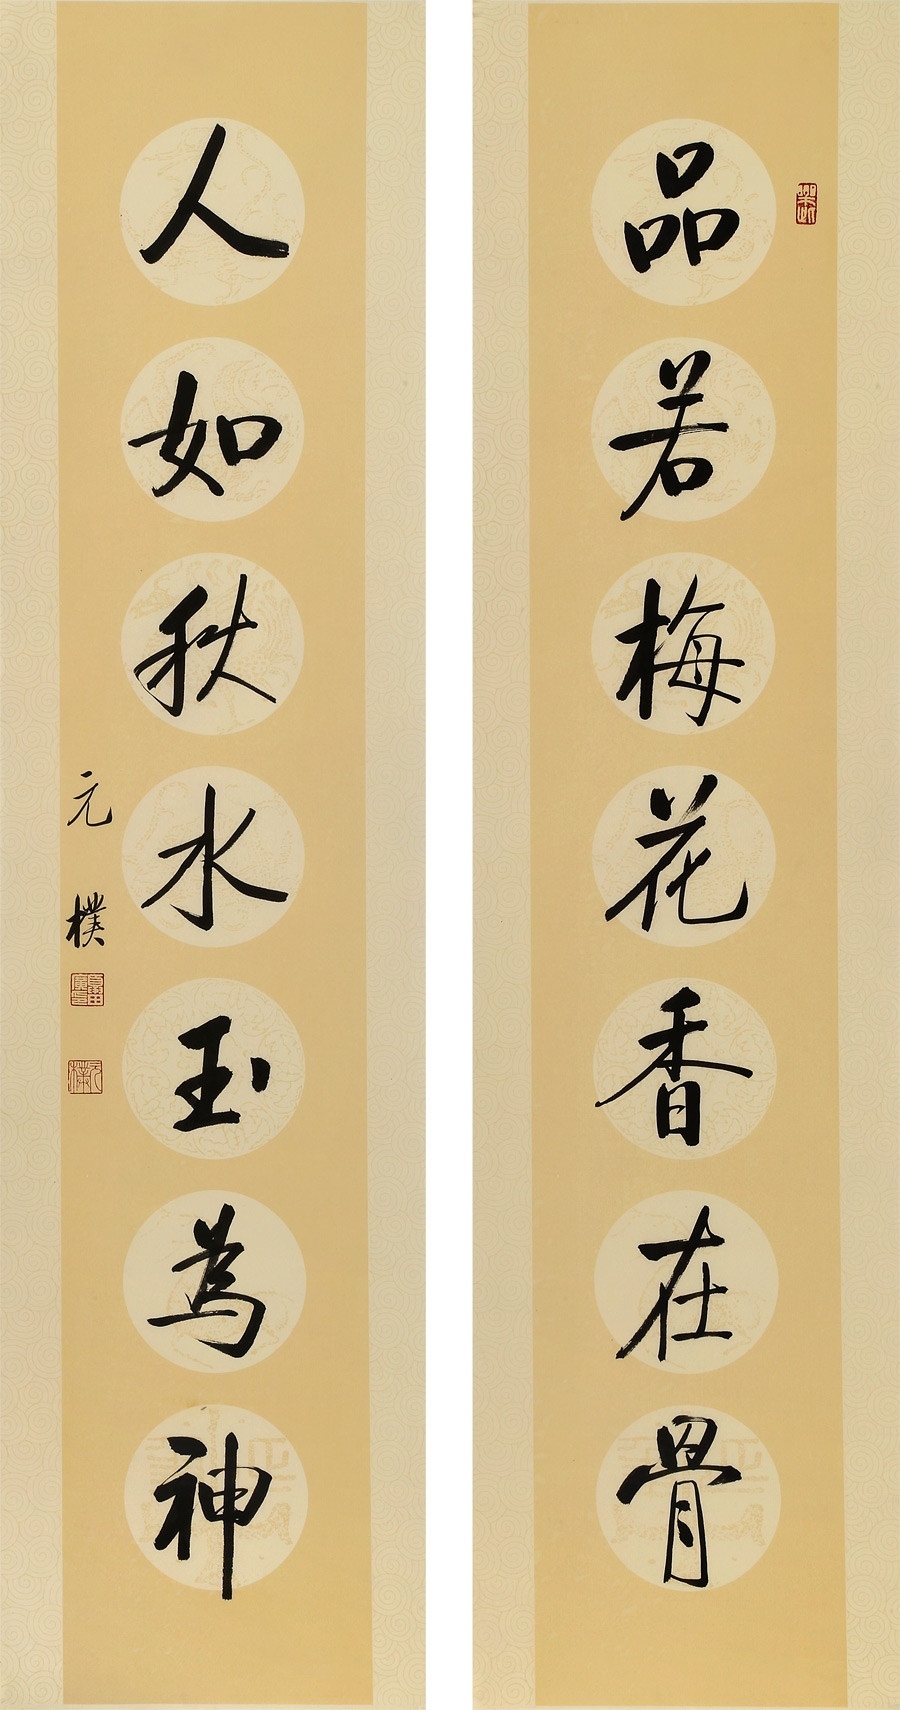 品若梅花香在骨
人如秋水玉為神
元樸